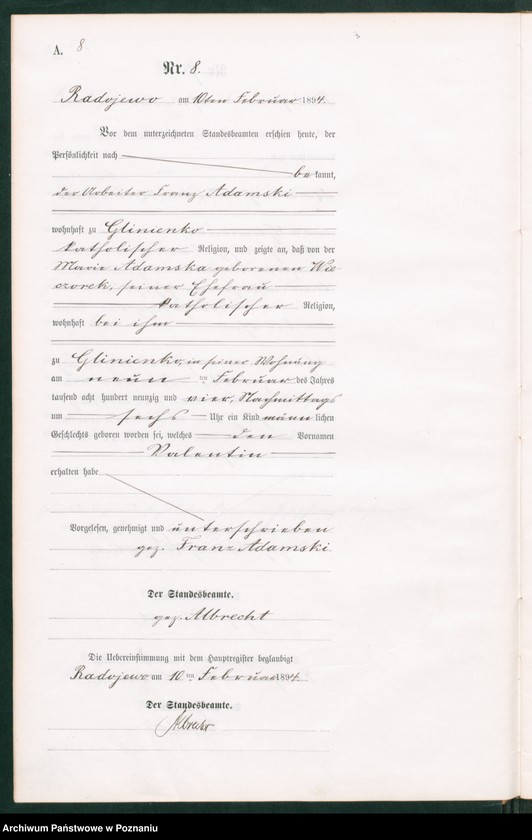 A. 8
Nr. 8.
Radojewo am 10ten Februar 1894.
Vor dem unterzeichneten Standesbeamten erschien heute, der
Persönlichkeit nach
bekannt,
der Arbeiter Franz Adamski
wohnhaft zu Glinienko
katholischer Religion, und zeigte an, daß von der
Marie Adamska geborenen Wie-
czorek, seiner Ehefrau
katholischer Religion,
wohnhaft bei ihm
zu Glinienko, in seiner Wohnung
am neunten Februar des Jahres
tausend acht hundert neunzig und vier, Nachmittags
um sechs Uhr ein Kind männlichen
Geschlechts geboren worden sei, welches den Vornamen
Valentin
erhalten habe
Vorgelesen, genehmigt und unterschrieben
gez. Franz Adamski
Der Standesbeamte.
gez. Albrecht
Die Uebereinstimmung mit dem Hauptregister beglaubigt
Radojewo am 10ten Februar 1894.
Der Standesbeamte.
Albrecht
Archiwum Państwowe w Poznaniu